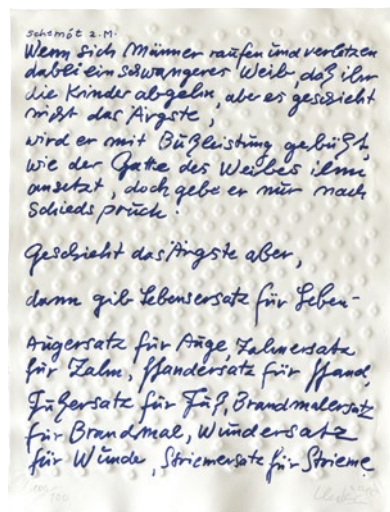 Schemot 2.M.
Wenn sich Männer raufen und verletzen
dabei ein schwangeres Weib, daß ihr
die Kinder abgehn, aber es geschieht
nicht das Ärgste,
wird er mit Bußleistung gebüßt,
wie der Gatte des Weibes ihm
ansetzt, doch gebe er nur nach
Schiedspruch.
Geschieht das Ärgste aber,
dann gib Lebensersatz für Leben-
Augersatz für Auge, Zahnersatz
für Zahn, Handersatz für Hand,
Fußersatz für Fuß, Brandmalersatz
für Brandmal, Wundersatz
für Wunde, Striemersatz für Strieme
100